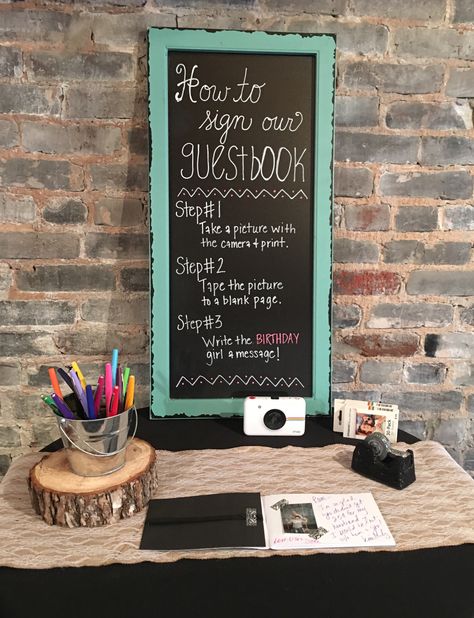 How to
sign our
guestBOOK
Step#1
Take a picture with
the camera + print.
Step#2
Tape the picture
to a blank page.
Step#3
Write the BIRTHDAY
girl a message!